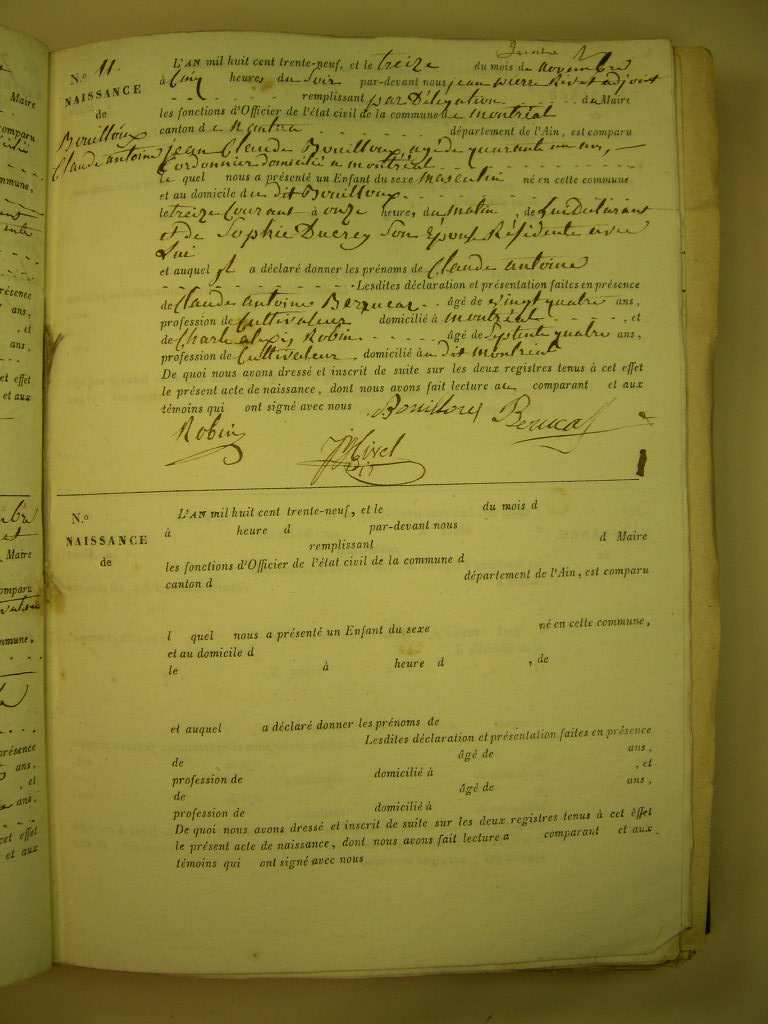 N.o 11.
NAISSANCE
de
Bouilloux
Claude antoine
L'AN mil huit cent trente-neuf, et le treize du mois de novembre
à Cinq heures du Soir par-devant nous jean pierre Rivet adjoint
remplissant par Délégation du Maire
les fonctions d'Officier de l'état civil de la commune de montréal
canton de Nantua département de l'Ain, est comparu
Jean Claude Bouilloux, agé de quarante un ans,
Cordonnier domicilié a montréal
le quel nous a présenté un Enfant du sexe masculin né en cette commune
et au domicile du dit Bouilloux
le treize Courant à onze heures du matin, de Lui Déclarant
et de Sophie Ducrey Son Epouse Résidente avec
Lui
et auquel il a déclaré donner les prénoms de Claude antoine
Lesdites déclaration et présentation faites en présence
de Claude antoine âgé de vingt quatre ans,
profession de Cultivateur domicilié à montréal, et
de Charle alexis Robin âgé de Septente quatre ans,
profession de Cultivateur domicilié au dit montréal
De quoi nous avons dressé et inscrit de suite sur les deux registres tenus à cet effet
le présent acte de naissance, dont nous avons fait lecture au comparant et aux
témoins qui ont signé avec nous Bouilloux
Robin
N.o
NAISSANCE
de
L'AN mil huit cent trente-neuf, et le du mois d
à heure d par-devant nous
remplissant d Maire
les fonctions d'Officier de l'état civil de la commune d
canton d département de l'Ain, est comparu
l quel nous a présenté un Enfant du sexe né en cette commune,
et au domicile d
le à heure d , de
et auquel a déclaré donner les prénoms de
Lesdites déclaration et présentation faites en présence
de âgé de ans,
profession de domicilié à , et
de âgé de ans,
profession de domicilié à
De quoi nous avons dressé et inscrit de suite sur les deux registres tenus à cet effet
le présent acte de naissance, dont nous avons fait lecture a comparant et aux
témoins qui ont signé avec nous